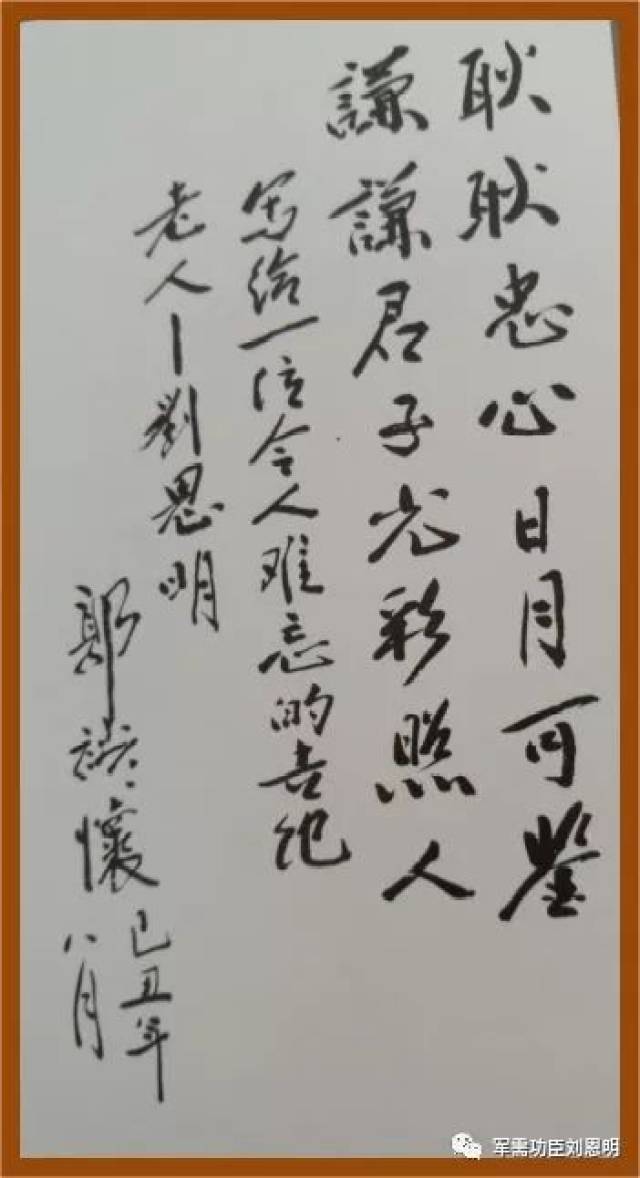 耿耿忠心日月可鉴
謙謙君子光彩照人
写给一位令人难忘的世纪
老人—劉恩明
郭懷
己丑年
八月
军需功臣刘恩明